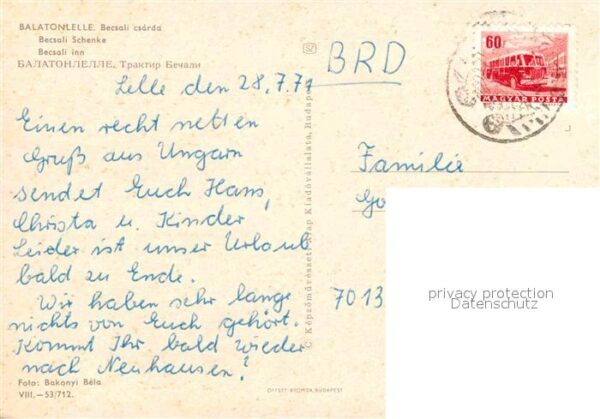 BALATONLELLE. Becsali csárda
Becsali Schenke
Becsali inn
БАЛАТОНЛЕЛЛЕ, Трактир Бечали
Lelle den 28.7.71
Einen recht netten
Gruß aus Ungarn
sendet Euch Hans,
Christa u. Kinder
Leider ist unser Urlaub
bald zu Ende.
Wir haben sehr lange
nichts von Euch gehört.
Kommt Ihr bald wieder
nach Neuhausen?
Foto: Bakonyi Béla
VIII.—53/712.
© Képzőművészeti Alap Kiadóvállalata, Budapest
OFFSET-NYOMDA, BUDAPEST
BRD
60
MAGYAR POSTA
Familie
7013
privacy protection
Datenschutz